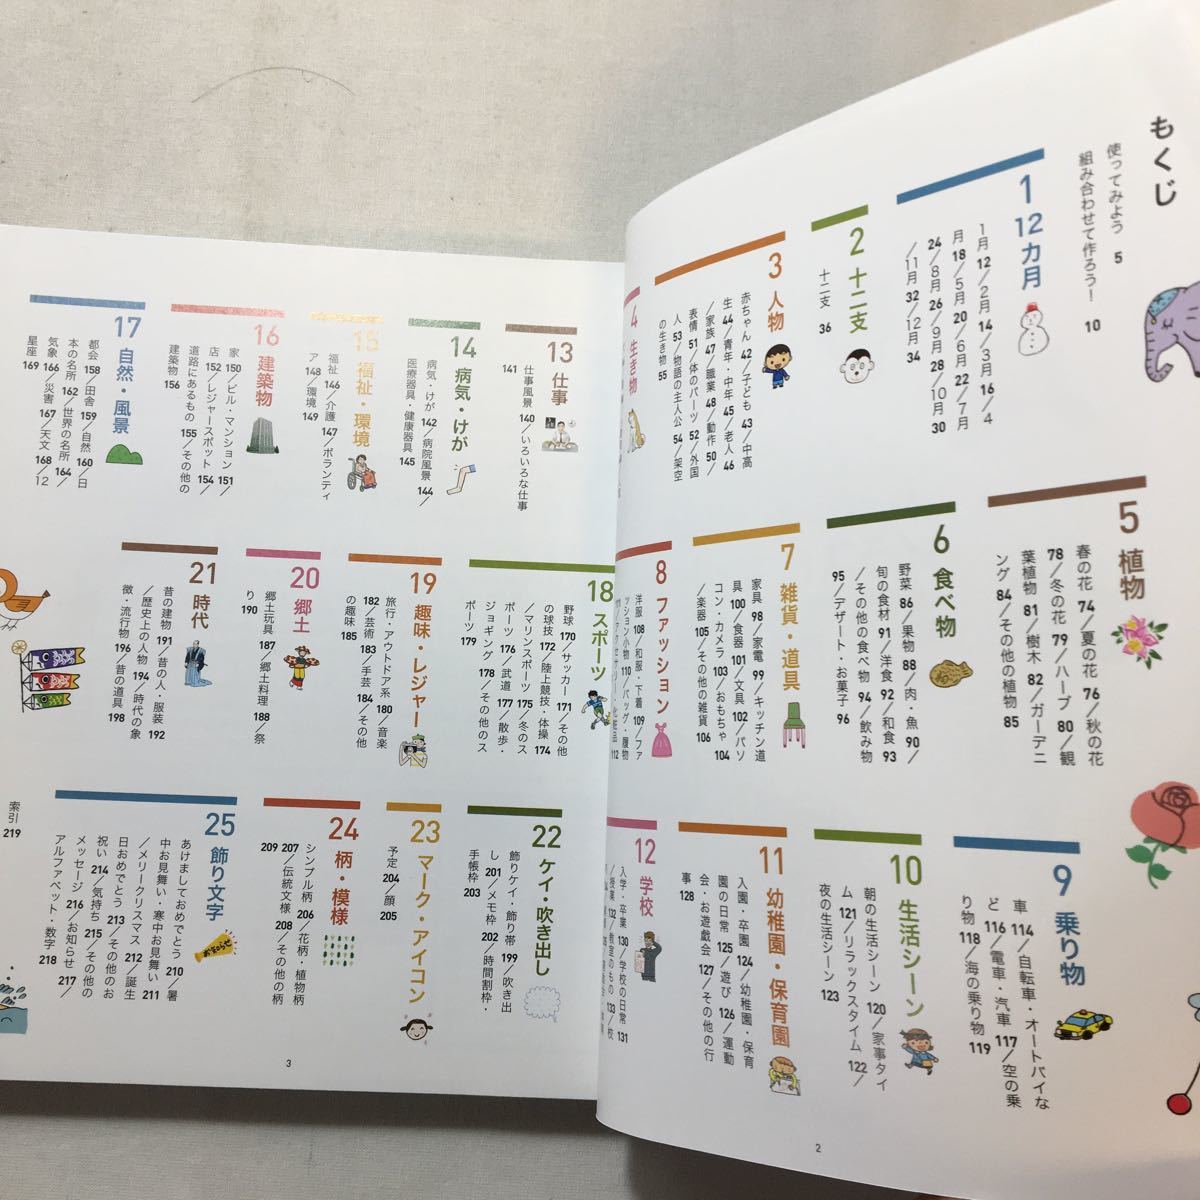 もくじ
使ってみよう 5
組み合わせて作ろう! 10
1 12カ月
1月 12/2月 14/3月 16/4
月 18/5月 20/6月 22/7月
24/8月 26/9月 28/10月 30
/11月 32/12月 34
2 十二支
十二支 36
3 人物
赤ちゃん 42/子ども 43/中高
生 44/青年・中年 45/老人 46
/家族 47/職業 48/動作 50/
表情 51/体のパーツ 52/外国
人 53/物語の主人公 54/架空
の生き物 55
4 生き物
5 植物
春の花 74/夏の花 76/秋の花
78/冬の花 79/ハーブ 80/観
葉植物 81/樹木 82/ガーデニ
ング 84/その他の植物 85
6 食べ物
野菜 86/果物 88/肉・魚 90/
旬の食材 91/洋食 92/和食 93
/その他の食べ物 94/飲み物
95/デザート・お菓子 96
7 雑貨・道具
家具 98/家電 99/キッチン道
具 100/食器 101/文具 102/パソ
コン・カメラ 103/おもちゃ 104
/楽器 105/その他の雑貨 106
8 ファッション
洋服 108/和服・下着 109/ファ
ッション小物 110/バッグ・履物
9 乗り物
車 114/自転車・オートバイな
ど 116/電車・汽車 117/空の乗
り物 118/海の乗り物 119
10 生活シーン
朝の生活シーン 120/家事タイ
ム 121/リラックスタイム 122/
夜の生活シーン 123
11 幼稚園・保育園
入園・卒園 124/幼稚園・保育
園の日常 125/遊び 126/運動
会・お遊戯会 127/その他の行
事 128
12 学校
入学・卒業 130/学校の日常 131
/授業 132/教室のもの 133/校
2
13 仕事
仕事風景 140/いろいろな仕事
141
14 病気・けが
病気・けが 142/病院風景 144/
医療器具・健康器具 145
15 福祉・環境
福祉 146/介護 147/ボランティ
ア 148/環境 149
16 建築物
家 150/ビル・マンション 151/
店 152/レジャースポット 154/
道路にあるもの 155/その他の
建築物 156
17 自然・風景
都会 158/田舎 159/自然 160/日
本の名所 162/世界の名所 164/
気象 166/災害 167/天文 168/12
星座 169
18 スポーツ
野球 170/サッカー 171/その他
の球技 172/陸上競技・体操 174
/マリンスポーツ 175/冬のス
ポーツ 176/武道 177/散歩・
ジョギング 178/その他のス
ポーツ 179
19 趣味・レジャー
旅行・アウトドア系 180/音楽
182/芸術 183/手芸 184/その他
の趣味 185
20 郷土
郷土玩具 187/郷土料理 188/祭
り 190
21 時代
昔の建物 191/昔の人・服装 192
/歴史上の人物 194/時代の象
徴・流行物 196/昔の道具 198
22 ケイ・吹き出し
飾りケイ・飾り帯 199/吹き出
し 201/メモ枠 202/時間割枠・
手帳枠 203
23 マーク・アイコン
予定 204/顔 205
24 柄・模様
シンプル柄 206/花柄・植物柄
207/伝統文様 208/その他の柄
209
25 飾り文字
あけましておめでとう 210/暑
中お見舞い・寒中お見舞い 211
/メリークリスマス 212/誕生
日おめでとう 213/その他のお
祝い 214/気持ち 215/その他の
メッセージ 216/お知らせ 217/
アルファベット・数字 218
おしらせ
索引 219
3